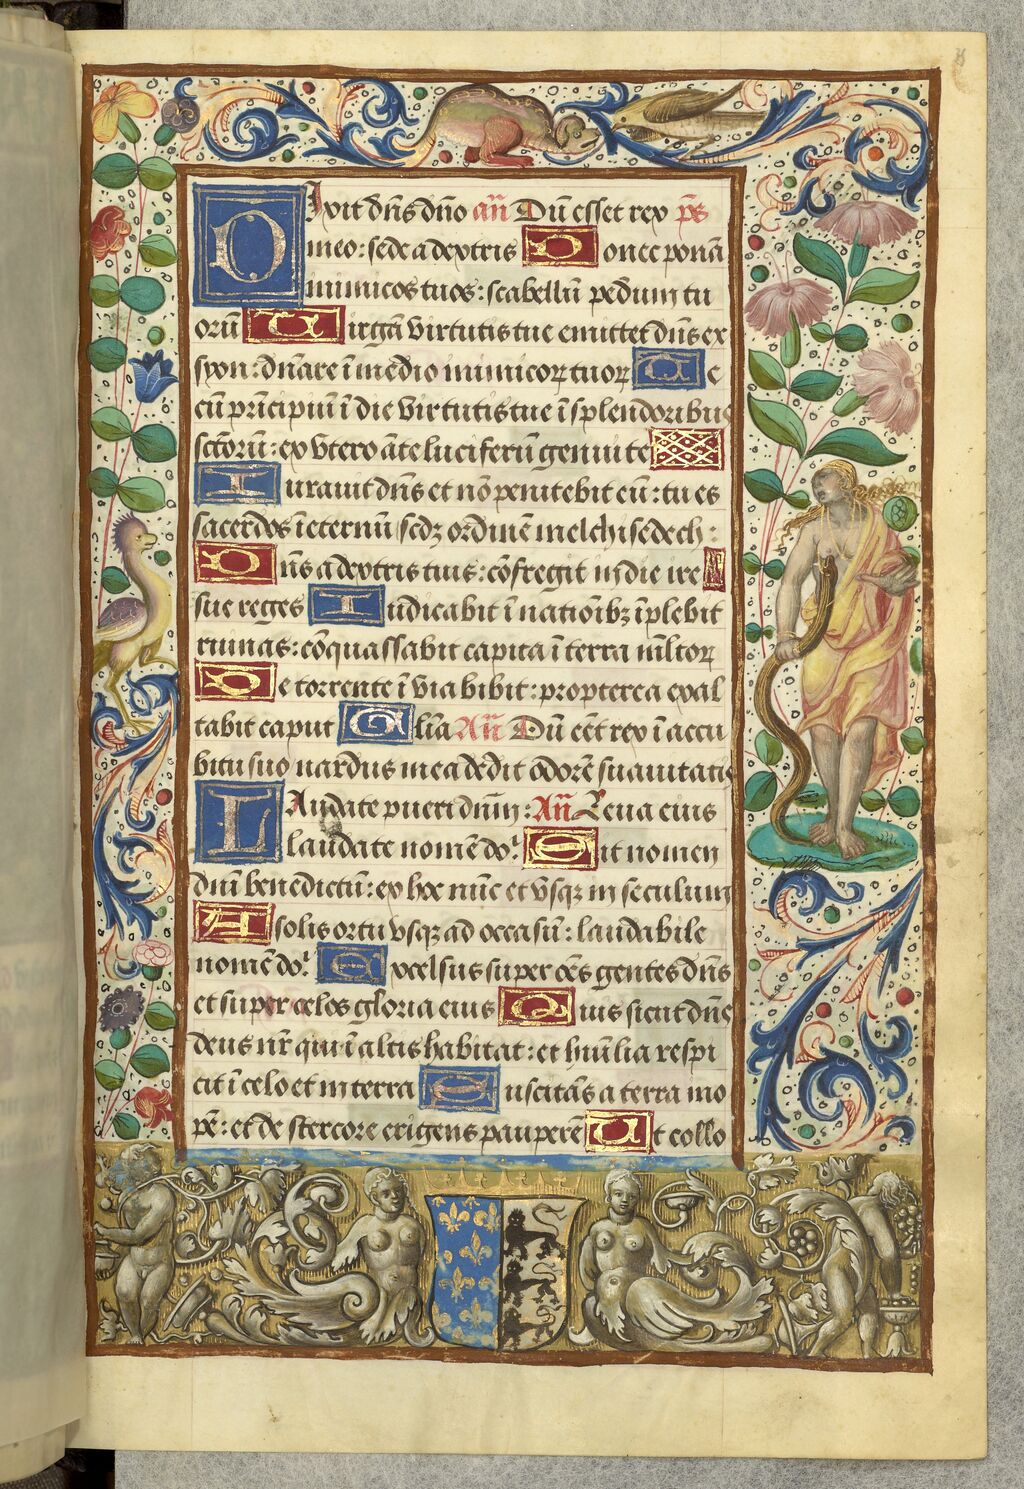 DIxit dn̄s dn̄o an̄ Dū esset rex ps̄
meo: sede a dextris Donec ponā
inimicos tuos: scabellū pedum tu
orū Uirgā virtutis tue emittet dn̄s ex
syon: dn̄are ī medio inimicoꝝ tuoꝝ Te
cū prīcipiū ī die virtutis tue ī splendoribus
sc̄torū: ex vtero āte luciferū genui te
Iurauit dn̄s et nō penitebit eū: tu es
sacerdos ī eternū scd̄z ordinē melchisedech:
Dn̄s a dextris tuis: cōfregit in die ire
sue reges Iudicabit ī natiōibꝫ īplebit
ruinas: cōquassabit capita ī terra ml̄toꝝ
De torrente ī via bibit: propterea exal
tabit caput Gl̄ia An̄ Dū eēt rex ī accu
bitu suo nardus mea dedit odorē suauitatis
LAudate pueri dn̄m: An̄ Leua eius
laudate nomē do. Sit nomen
dn̄i benedictū: ex hoc nūc et vsqꝫ in seculum
A solis ortu vsqꝫ ad occasū: laudabile
nomē do. Excelsus super oēs gentes dn̄s
et super celos gloria eius Quis sicut dn̄s
deus nr̄ qui ī altis habitat: et hūilia respi
cit ī celo et in terra Suscitās a terra ino
pē: et de stercore erigens pauperē Ut collo